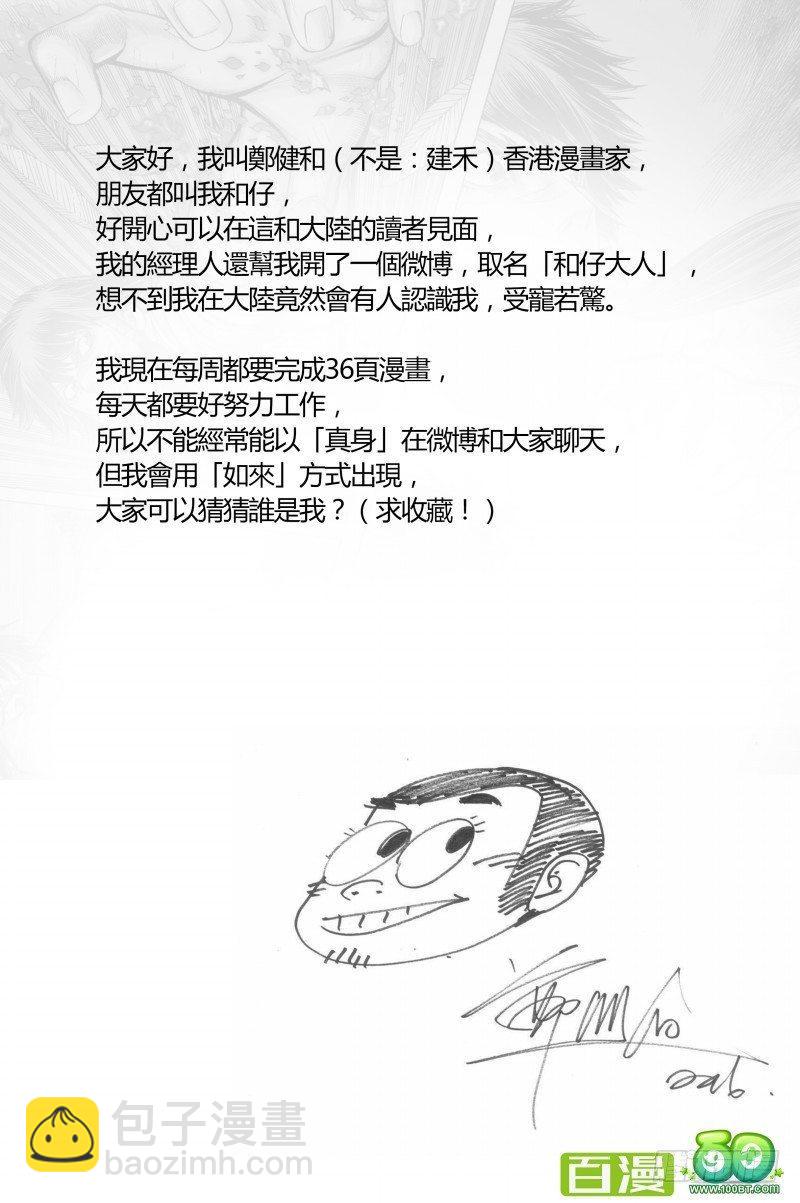 大家好，我叫鄭健和（不是：建禾）香港漫畫家，
朋友都叫我和仔，
好開心可以在這和大陸的讀者見面，
我的經理人還幫我開了一個微博，取名「和仔大人」，
想不到我在大陸竟然會有人認識我，受寵若驚。
我現在每周都要完成36頁漫畫，
每天都要好努力工作，
所以不能經常能以「真身」在微博和大家聊天，
但我會用「如來」方式出現，
大家可以猜猜誰是我？（求收藏！）
包子漫畫
baozimh.com
百漫
WWW.100BT.COM